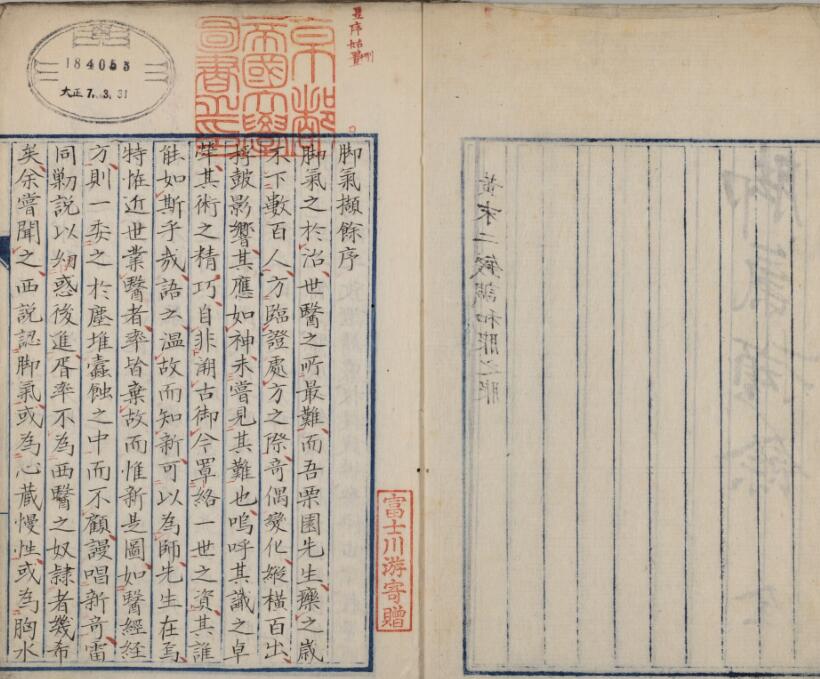 脚氣擷餘序
脚氣之於治世醫之所最難而吾栗園先生療之歲
不下數百人方臨證處方之際奇偶變化縱橫百出
桴鼓影響其應如神未嘗見其難也嗚呼其識之卓
犖其術之精巧自非溯古御今罩絡一世之資其誰
能如斯乎哉語云温故而知新可以為師先生在焉
特恠近世業醫者率皆棄故而惟新是圖如醫經經
方則一委之於塵堆蠹蝕之中而不顧謾唱新奇雷
同勦説以蠱惑後進胥率不為西醫之奴隷者幾希
矣余嘗聞之西説認脚氣或為心藏慢性或為胸水
京都
帝國大學
圖書之印
184055
大正7.3.31
富士川游寄贈
黄末二錢調和服之服